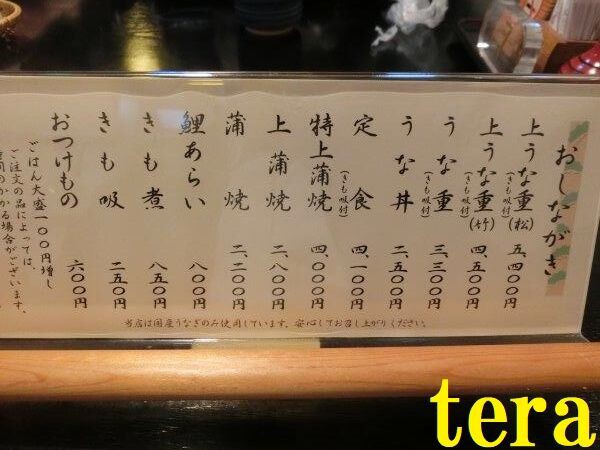 おしながき
上うな重(松) (きも吸付) 五、四〇〇円
上うな重(竹) (きも吸付) 四、五〇〇円
うな重 (きも吸付) 三、三〇〇円
うな丼 二、五〇〇円
定食 (きも吸付) 四、一〇〇円
特上蒲焼 四、〇〇〇円
上蒲焼 二、八〇〇円
蒲焼 二、二〇〇円
鯉あらい 八〇〇円
きも煮 八五〇円
きも吸 二五〇円
おつけもの 六〇〇円
ごはん大盛一〇〇円増し
ご注文の品によっては、
時間のかかる場合がございます。
当店は国産うなぎのみ使用しています。安心してお召し上がりください。
tera